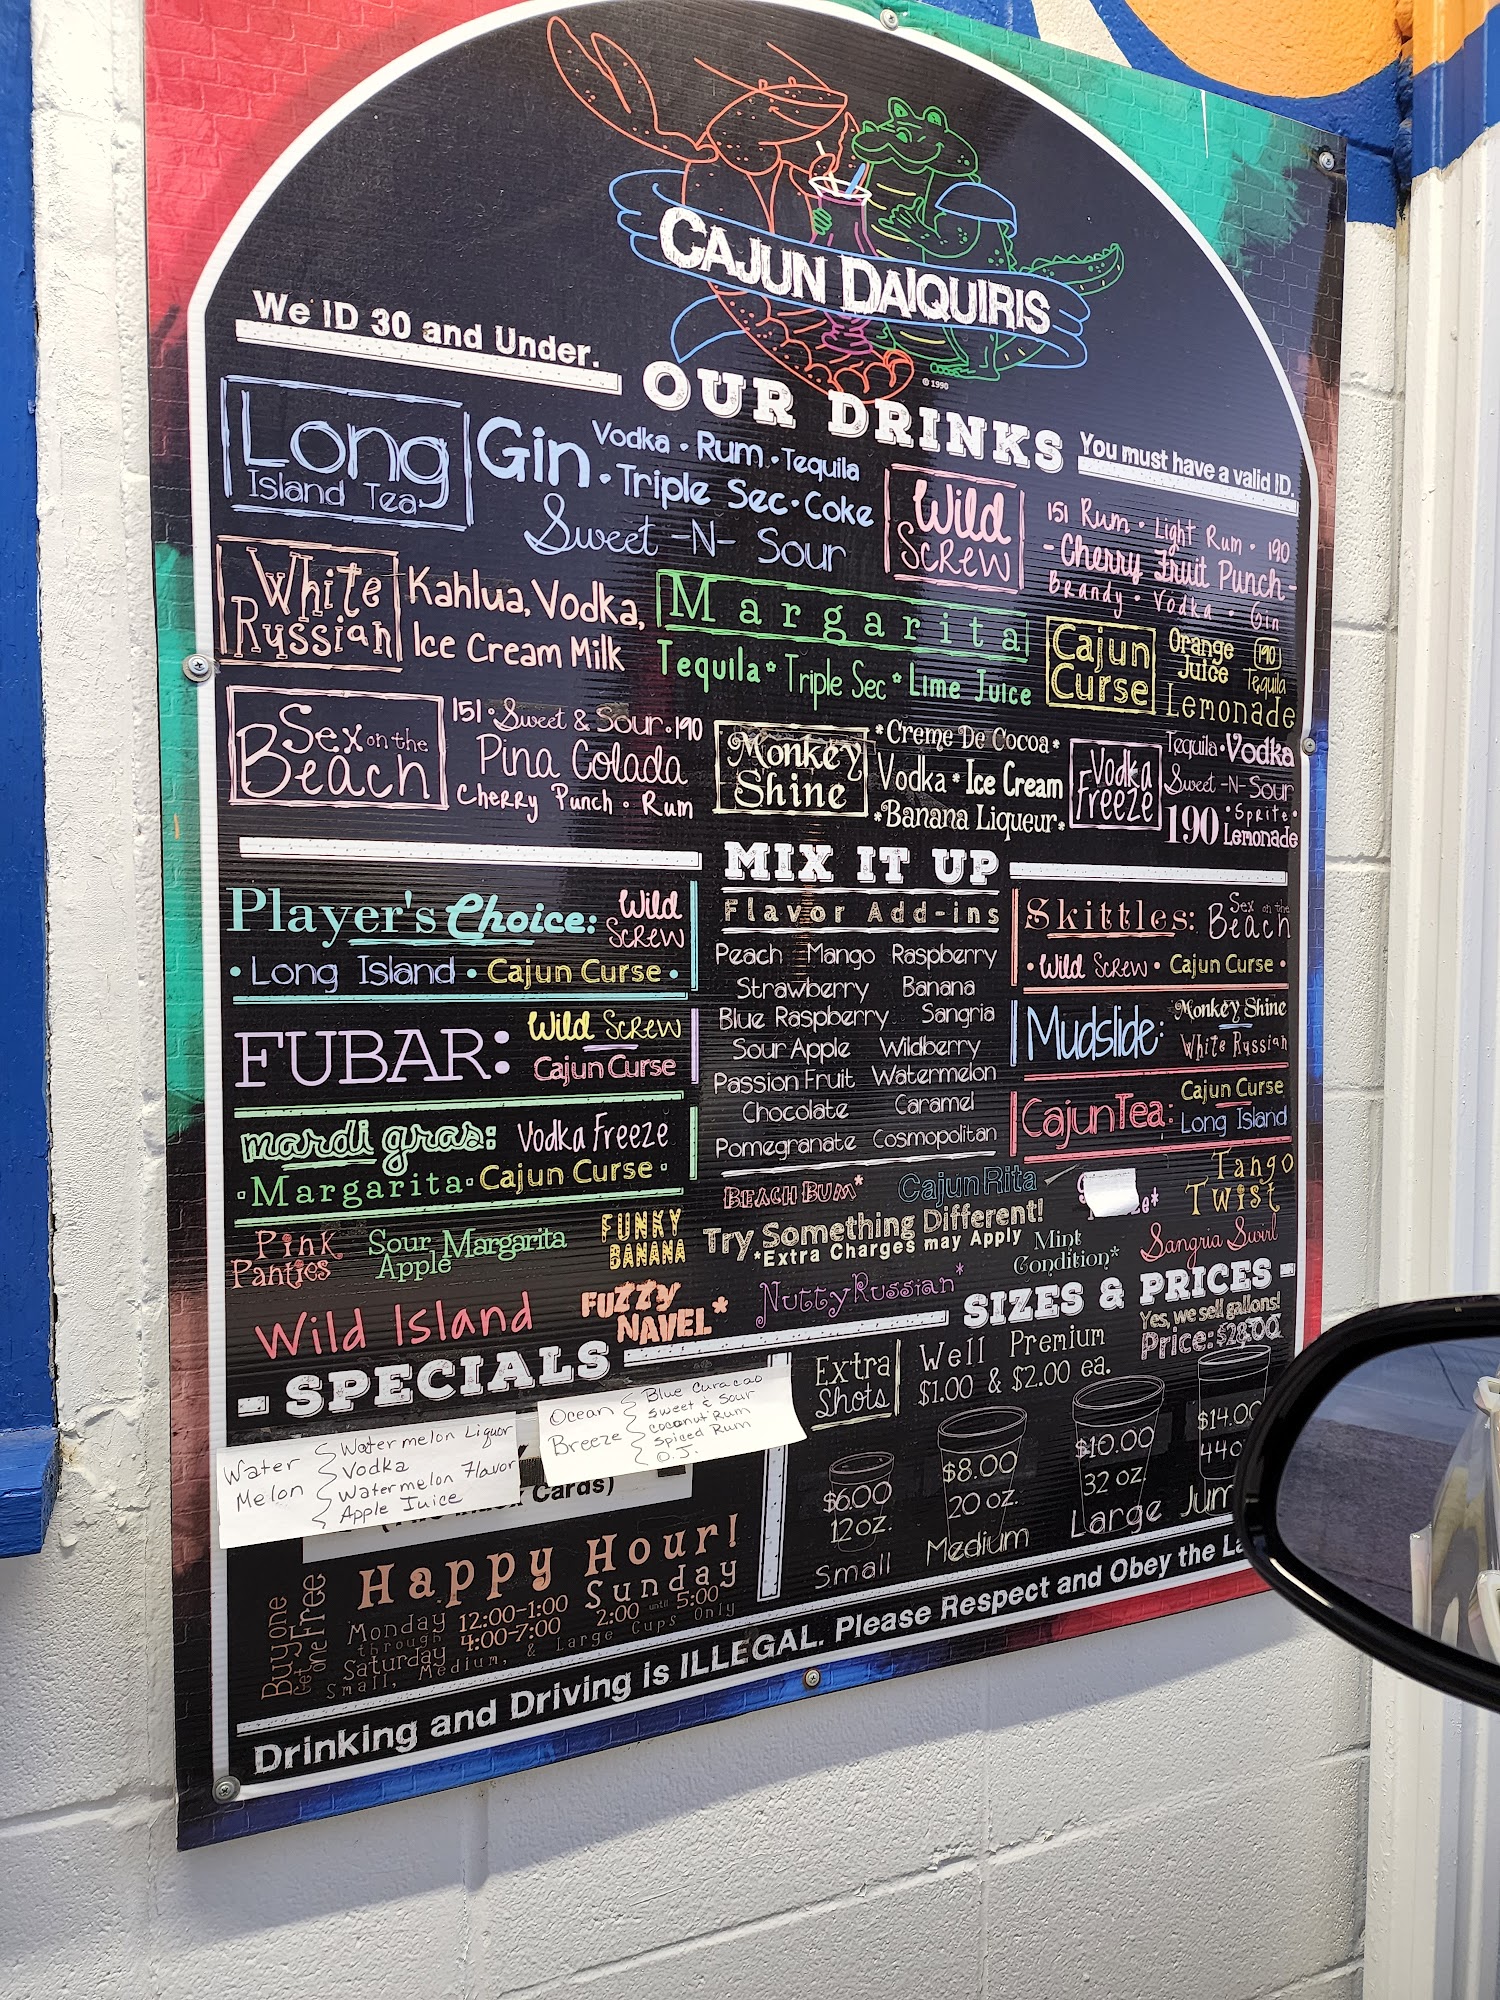 CAJUN DAIQUIRIS
© 1990
We ID 30 and Under.
OUR DRINKS
You must have a valid ID.
Long
Island Tea
Gin
Vodka • Rum • Tequila
• Triple Sec • Coke
Sweet -N- Sour
Wild
Screw
151 Rum • Light Rum • 190
- Cherry Fruit Punch -
Brandy • Vodka • Gin
White
Russian
Kahlua, Vodka,
Ice Cream Milk
Margarita
Tequila * Triple Sec * Lime Juice
Cajun
Curse
Orange
Juice
190
Tequila
Lemonade
Sex on the
Beach
151 • Sweet & Sour • 190
Pina Colada
Cherry Punch • Rum
Monkey
Shine
*Creme De Cocoa*
Vodka * Ice Cream
*Banana Liqueur*
Vodka
Freeze
Tequila • Vodka
Sweet -N- Sour
190
• Sprite •
Lemonade
MIX IT UP
Flavor Add-ins
Peach Mango Raspberry
Strawberry Banana
Blue Raspberry Sangria
Sour Apple Wildberry
Passion Fruit Watermelon
Chocolate Caramel
Pomegranate Cosmopolitan
Player's Choice: Wild
Screw
• Long Island • Cajun Curse •
FUBAR: Wild Screw
Cajun Curse
mardi gras: Vodka Freeze
• Margarita • Cajun Curse •
Skittles: Sex on the
Beach
• Wild Screw • Cajun Curse •
Mudslide: Monkey Shine
White Russian
Cajun Tea: Cajun Curse
Long Island
Pink
Panties
Sour
Apple Margarita
FUNKY
BANANA
BEACH BUM*
Cajun Rita
Tango
Twist
Try Something Different!
*Extra Charges may Apply
Mint
Condition*
Sangria Swirl
Wild Island
FUZZY
NAVEL*
Nutty Russian*
- SPECIALS
SIZES & PRICES -
Yes, we sell gallons!
Price: $28.00
Extra
Shots
Well Premium
$1.00 & $2.00 ea.
Water
Melon
Watermelon Liquor
Vodka
Watermelon Flavor
Apple Juice
Ocean
Breeze
Blue Curacao
Sweet & Sour
Coconut Rum
Spiced Rum
O.J.
Cards)
$6.00
12oz.
Small
$8.00
20 oz.
Medium
$10.00
32 oz.
Large
$14.00
44o
Jum
Happy Hour!
Buy one
Get one Free
Monday
through
Saturday
12:00-1:00
4:00-7:00
Sunday
2:00 until 5:00
Small, Medium, & Large Cups Only
Drinking and Driving is ILLEGAL. Please Respect and Obey the La